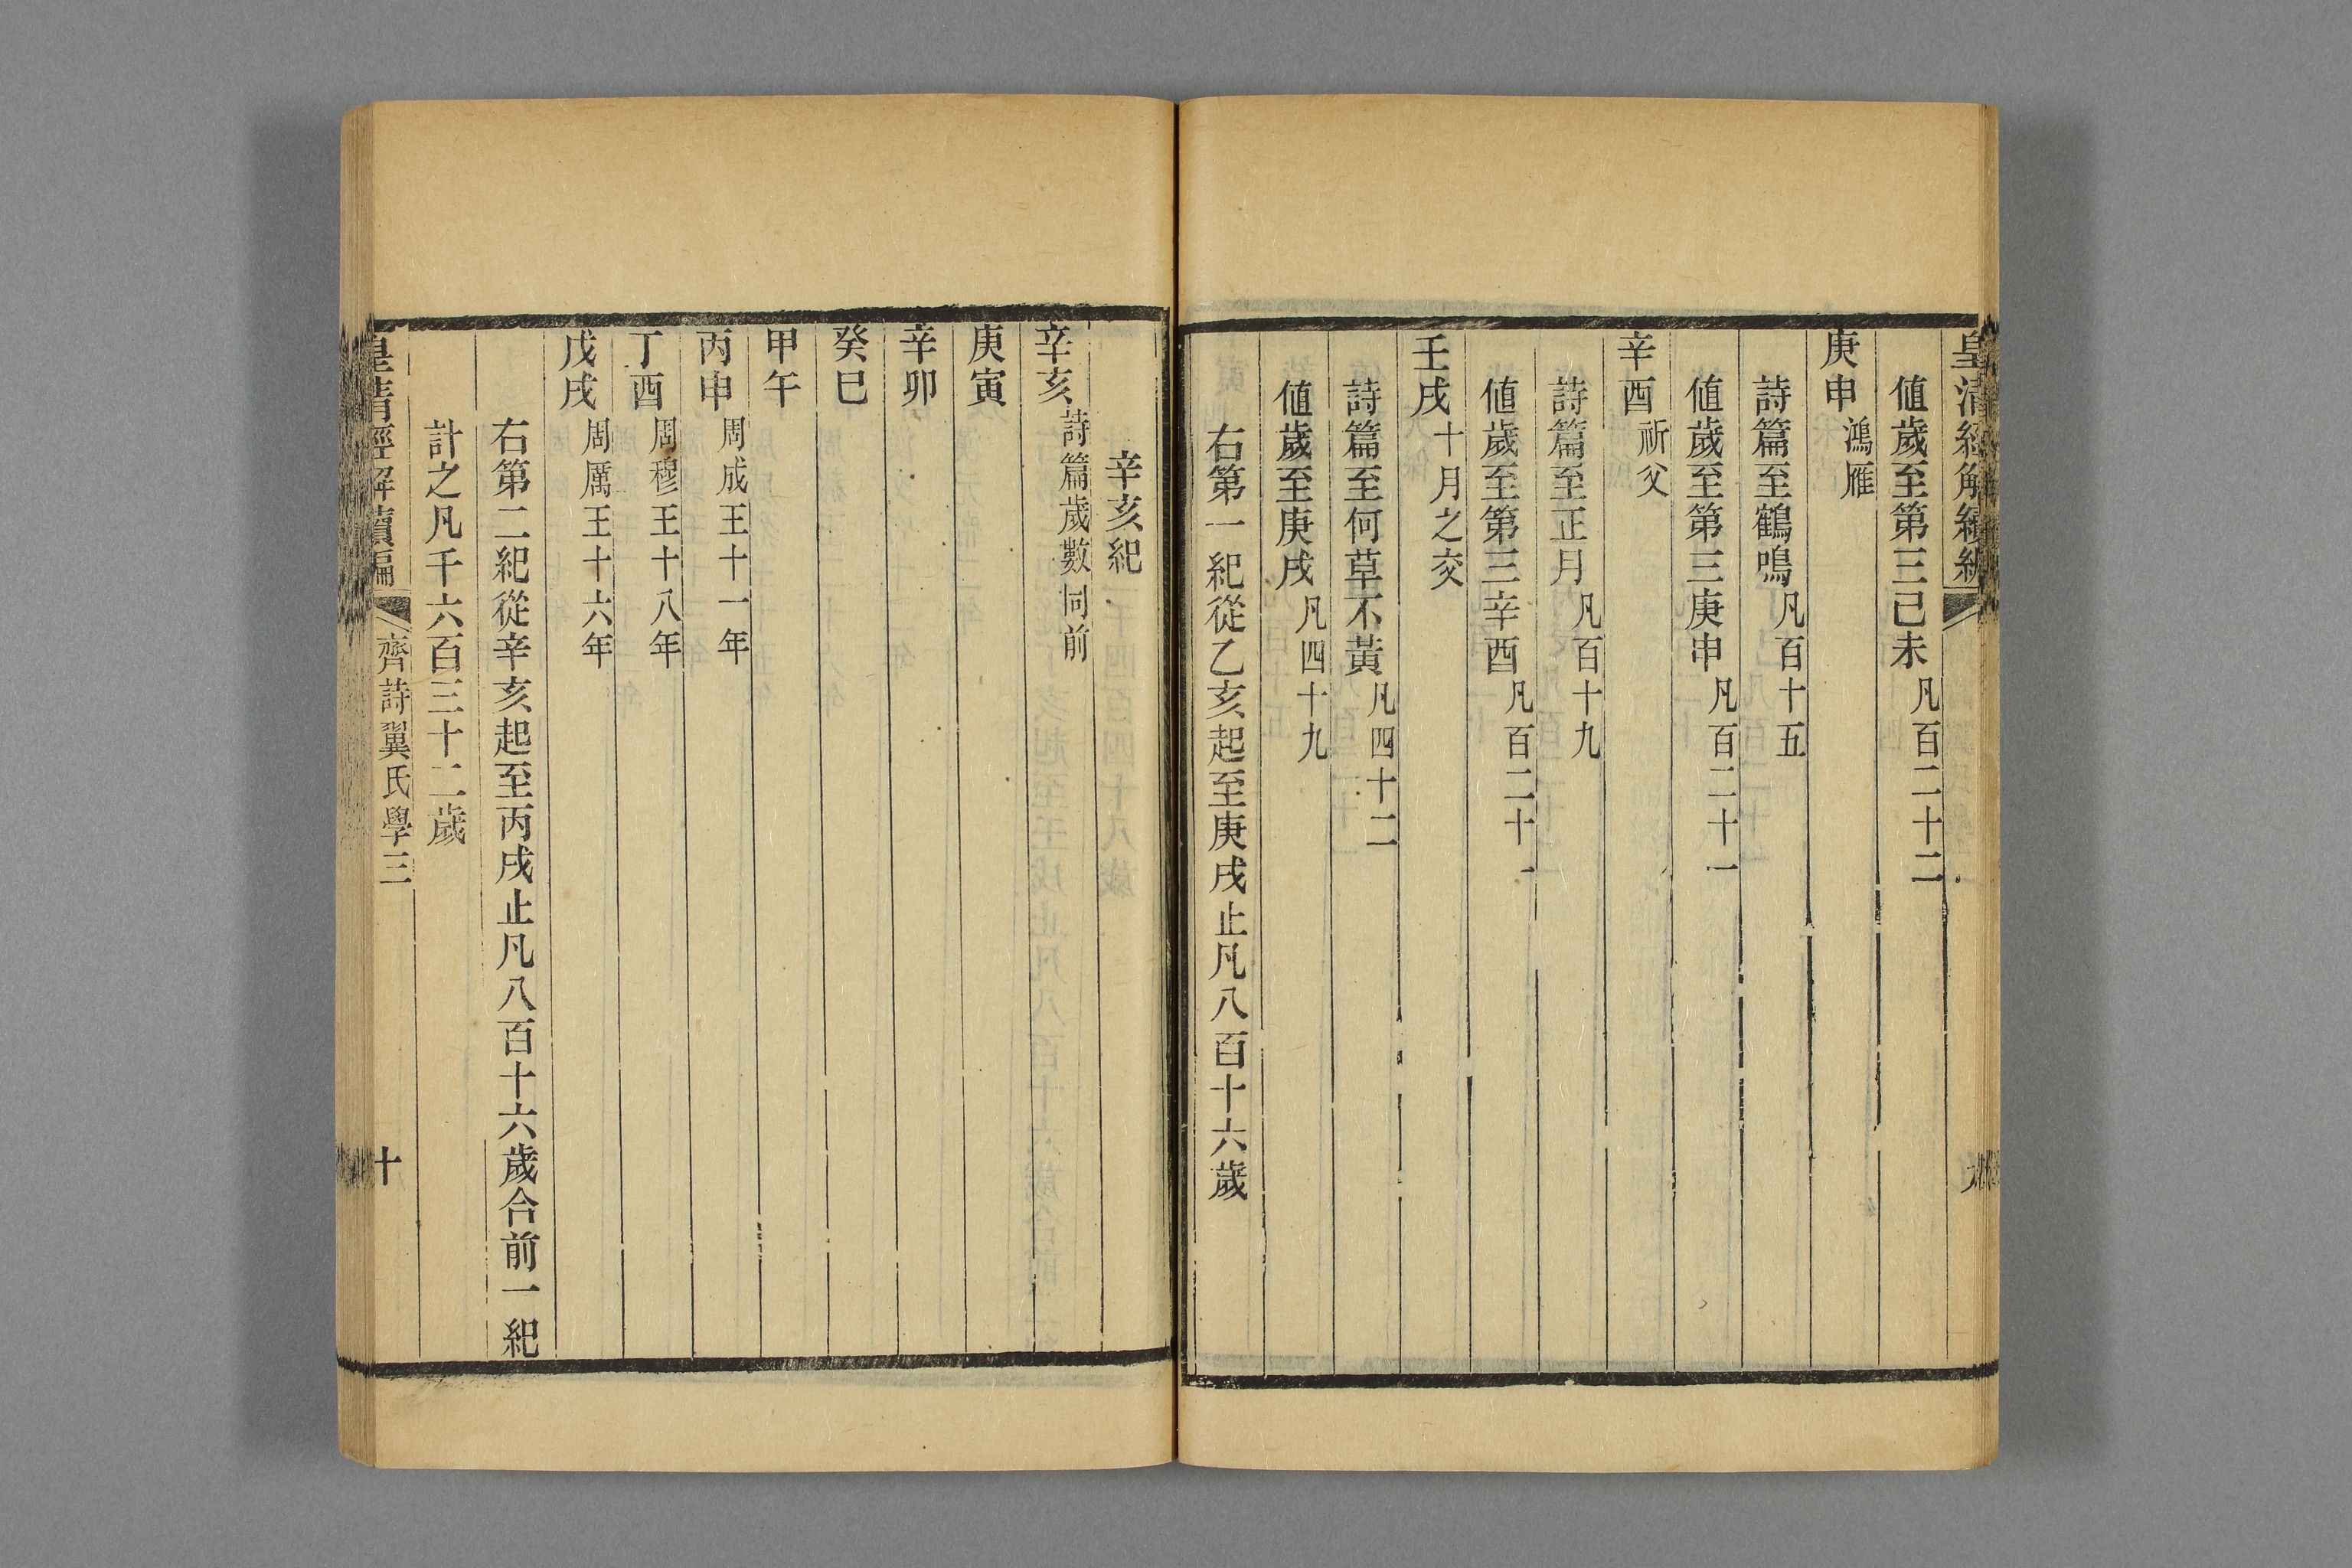 皇清經解續編
値歲至第三己未凡百二十二
庚申鴻雁
詩篇至鶴鳴凡百十五
値歲至第三庚申凡百二十一
辛酉祈父
詩篇至正月凡百十九
値歲至第三辛酉凡百二十一
壬戌十月之交
詩篇至何草不黃凡四十二
値歲至庚戌凡四十九
右第一紀從乙亥起至庚戌止凡八百十六歲
辛亥紀
辛亥詩篇歲數同前
庚寅
辛卯
癸巳
甲午
丙申周成王十一年
丁酉周穆王十八年
戊戌周厲王十六年
右第二紀從辛亥起至丙戌止凡八百十六歲合前一紀
計之凡千六百三十二歲
皇清經解續編 齊詩翼氏學三 十